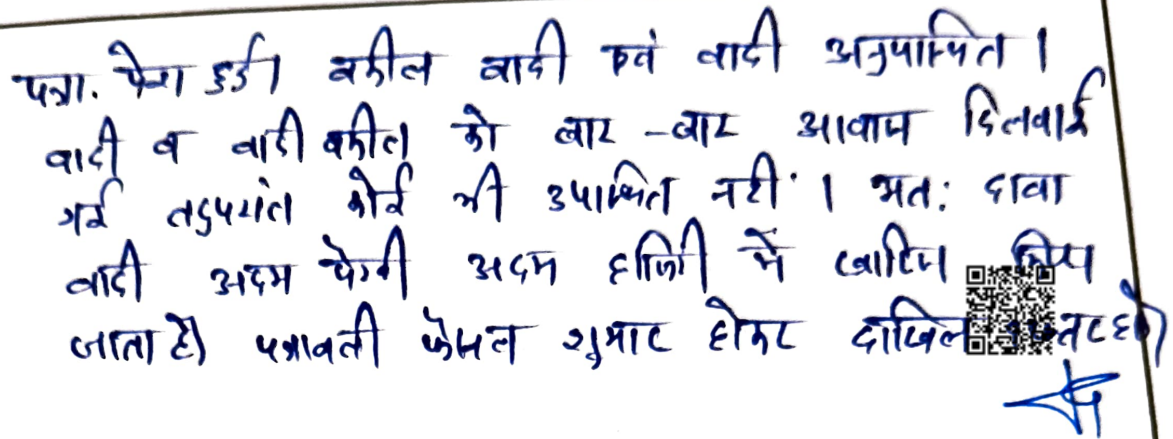 पत्रा. पेश हुई। वकील वादी एवं वादी अनुपस्थित।
वादी व वादी वकील को बार-बार आवाज दिलवाई
गई तदुपरांत कोई भी उपस्थित नहीं। अत: दावा
वादी अदम पैरवी अदम हाजिरी में खारिज किया
जाता है। पत्रावली फैसल शुमार होकर दाखिल हो।